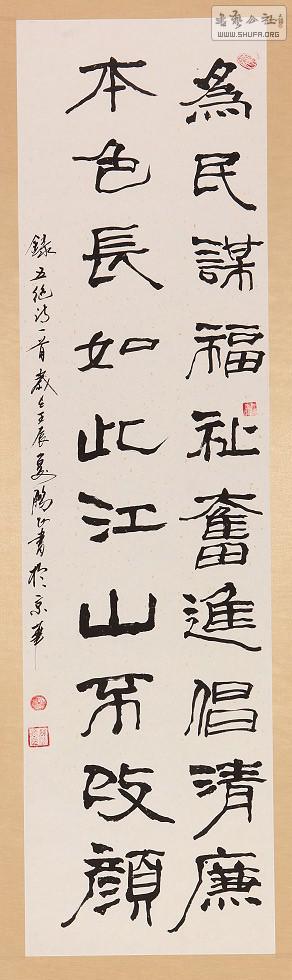 為民謀福祉奮進倡清廉
本色長如此江山不改顏
錄五絕詩一首歲在壬辰夏鵬書於京華
WWW.SHUFA.ORG